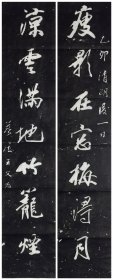 乙卯清明後一日
瘦影在窗梅得月
凉雲滿地竹籠煙